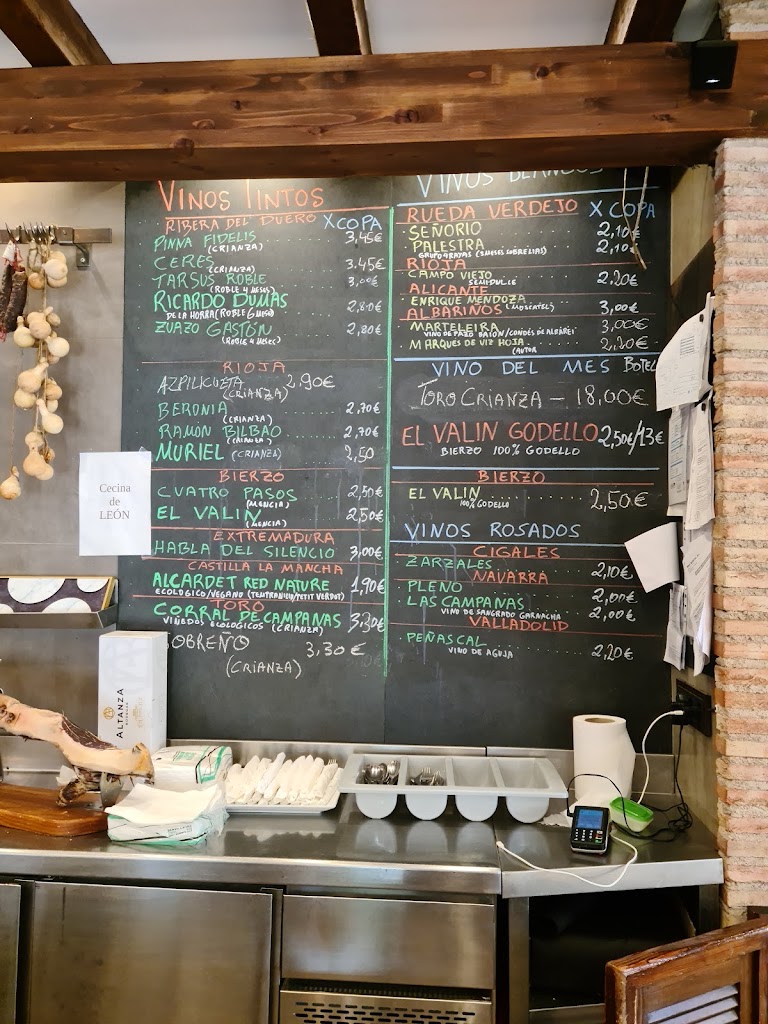 VINOS TINTOS
RIBERA DEL DUERO X COPA
PINNA FIDELIS 3,45€
(CRIANZA)
CERES 3.45€
(CRIANZA)
TARSUS ROBLE 3,00€
(ROBLE 4 MESES)
RICARDO DUMAS 2,80€
DE LA HORRA (ROBLE 6 MESES)
ZUAZO GASTÓN 2,80€
(ROBLE 4 MESES)
RIOJA
AZPILICUETA 2,90€
(CRIANZA)
BERONIA 2,70€
(CRIANZA)
RAMÓN BILBAO 2,70€
(CRIANZA)
MURIEL (CRIANZA) 2,50
BIERZO
CUATRO PASOS 2,50€
(MENCIA)
EL VALIN 2,50€
(MENCIA)
EXTREMADURA
HABLA DEL SILENCIO 3,00€
CASTILLA LA MANCHA
ALCARDET RED NATURE 1,90€
ECOLOGICO/VEGANO (TEMPRANILLO/PETIT VERDOT)
TORO
CORRAL DE CAMPANAS 3.30€
VIÑEDOS ECOLOGICOS (CRIANZA)
SOBREÑO 3,30€
(CRIANZA)
VINOS BLANCOS
RUEDA VERDEJO X COPA
SEÑORIO 2,10€
PALESTRA 2,10€
GRUPO 4 RAYAS (3 MESES SOBRE LIAS)
RIOJA
CAMPO VIEJO 2.20€
SEMIDULCE
ALICANTE
ENRIQUE MENDOZA 3,00€
(MOSCATEL)
ALBARIÑOS
MARTELEIRA 3,00€
VINO DE PAZO BAION/CONDES DE ALBAREI
MARQUES DE VIZ HOJA 2.20€
(AUTOR
VINO DEL MES BOTEL
TORO CRIANZA – 18,00€
EL VALIN GODELLO 2,50€/13€
BIERZO 100% GODELLO
BIERZO
EL VALIN 2,50€
100% GODELLO
VINOS ROSADOS
CIGALES
ZARZALES 2,10€
NAVARRA
PLENO 2,00€
LAS CAMPANAS 2,00€
VINO DE SANGRADO GARNACHA
VALLADOLID
PEÑASCAL 2,20€
VINO DE AGUJA
Cecina
de
LEÓN
ALTANZA